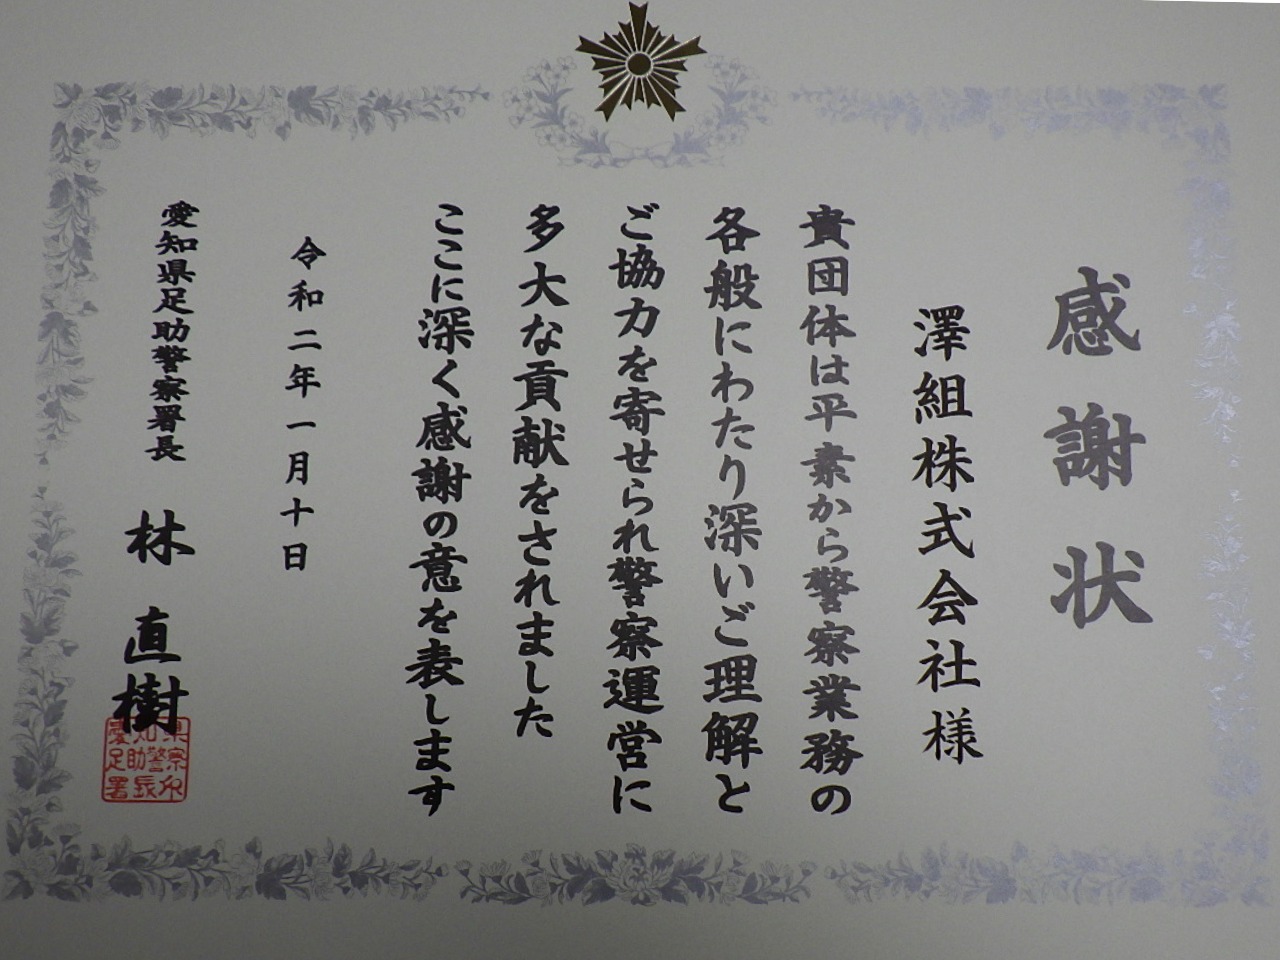 感謝状
澤組株式会社様
貴団体は平素から警察業務の
各般にわたり深いご理解と
ご協力を寄せられ警察運営に
多大な貢献をされました
ここに深く感謝の意を表します
令和二年一月十日
愛知県足助警察署長 林 直樹
愛知県
足助警察
署長印